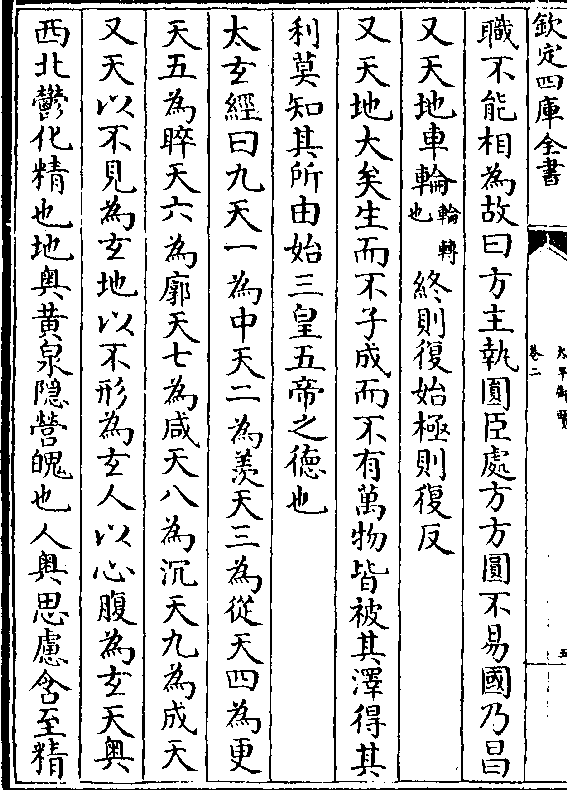 欽定四庫全書
太平御覽
卷二
五
職不能相為故曰方主執圓臣處方方圓不易國乃昌
又天地車輪輪轉也終則復始極則復反
又天地大矣生而不子成而不有萬物皆被其澤得其
利莫知其所由始三皇五帝之德也
太玄經曰九天一為中天二為羨天三為從天四為更
天五為睟天六為廓天七為咸天八為沉天九為成天
又天以不見為玄地以不形為玄人以心腹為玄天奥
西北鬱化精也地奥黄泉隠營魄也人奥思慮含至精